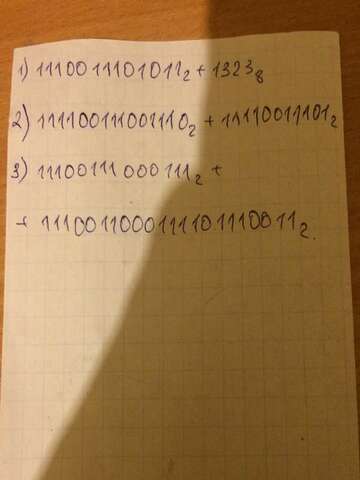 1) 1110011101011₂ + 1323₈
2) 111100111001110₂ + 11110011101₂
3) 11100111000111₂ +
+ 1110011000111101110011₂.